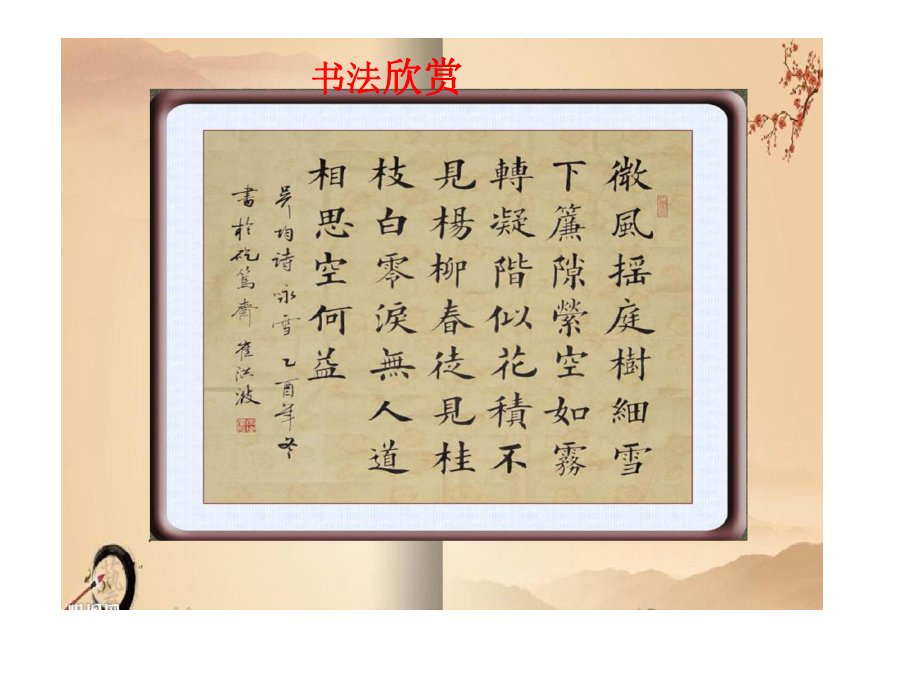 书法欣赏
微風摇庭樹細雪
下簾隙縈空如霧
轉凝階似花積不
見楊柳春徒見桂
枝白零淚無人道
相思空何益
吳均诗咏雪乙酉年冬
書於砣篤齋崔洪波